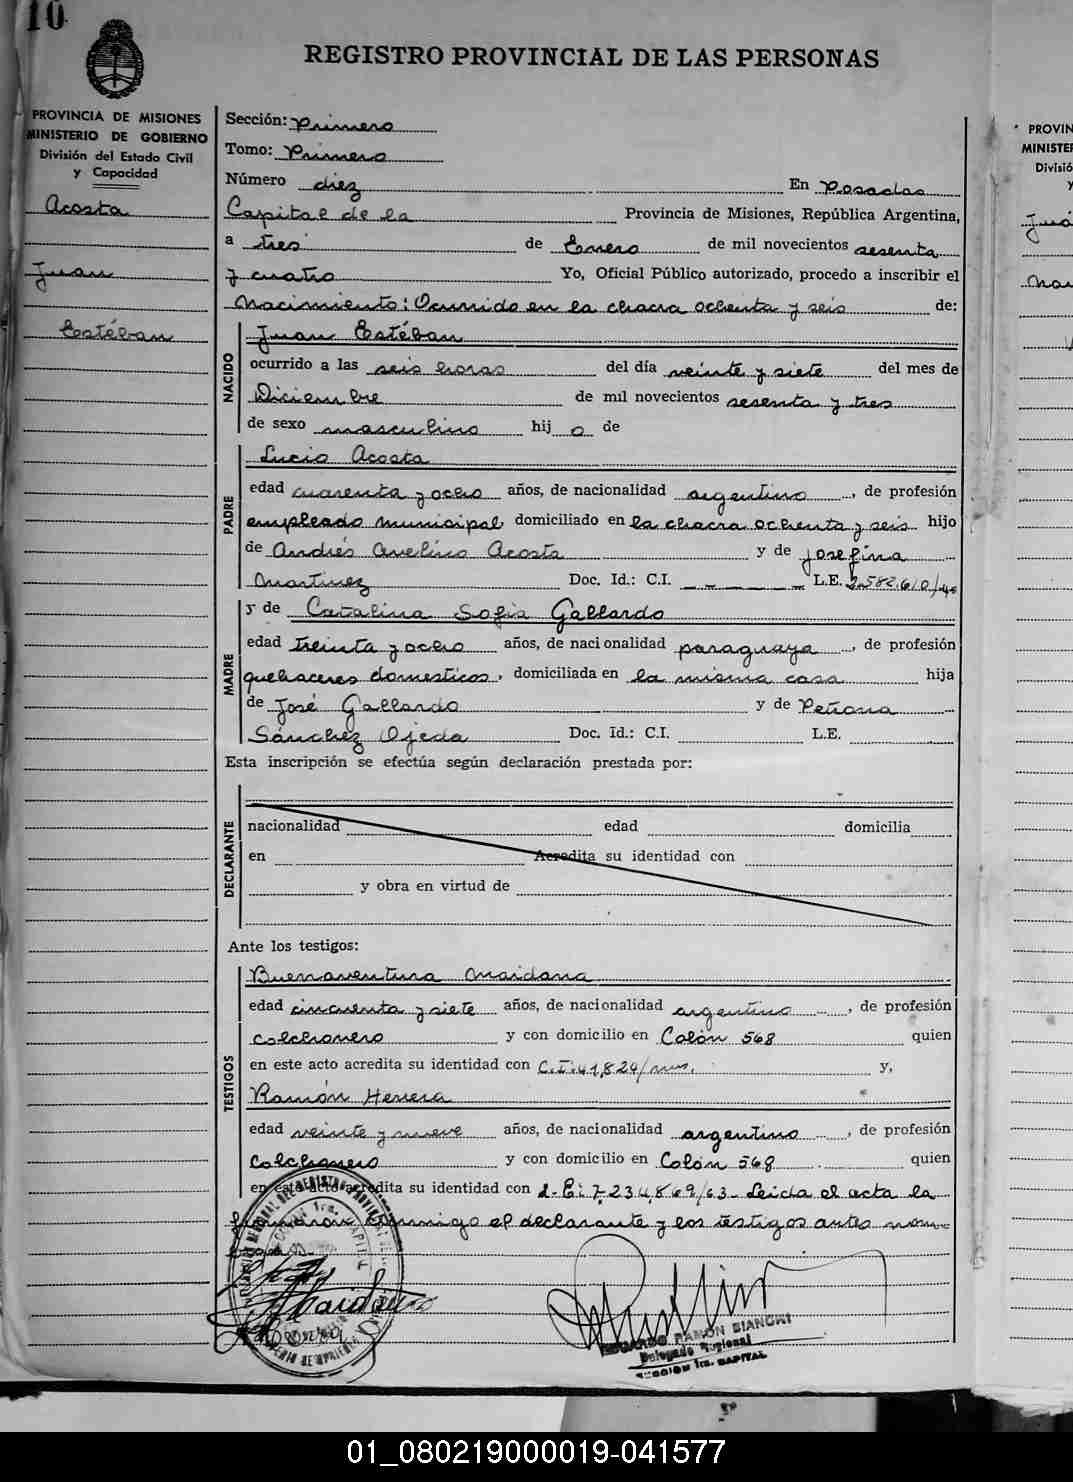 10
REGISTRO PROVINCIAL DE LAS PERSONAS
PROVINCIA DE MISIONES
MINISTERIO DE GOBIERNO
División del Estado Civil
y Capacidad
Acosta
Juan
Estéban
Sección: Primero
Tomo: Primero
Número diez En Posadas
Capital de la Provincia de Misiones, República Argentina,
a tres de Enero de mil novecientos sesenta
y cuatro Yo, Oficial Público autorizado, procedo a inscribir el
Nacimiento: Ocurrido en la chacra ochenta y seis de:
NACIDO
Juan Estéban
ocurrido a las seis horas del día veinte y siete del mes de
Diciembre de mil novecientos sesenta y tres
de sexo masculino hij o de
PADRE
Lucio Acosta
edad cuarenta y ocho años, de nacionalidad argentino, de profesión
empleado municipal domiciliado en la chacra ochenta y seis hijo
de Andrés Avelino Acosta y de Josefina
Martinez Doc. Id.: C.I. L.E. 2.582.610/40
MADRE
y de Catalina Sofia Gallardo
edad treinta y ocho años, de nacionalidad paraguaya, de profesión
quehaceres domesticos, domiciliada en la misma casa hija
de José Gallardo y de Petrona
Sánchez Ojeda Doc. Id.: C.I. L.E.
Esta inscripción se efectúa según declaración prestada por:
DECLARANTE
nacionalidad edad domicilia
en Acredita su identidad con
y obra en virtud de
Ante los testigos:
TESTIGOS
Buenaventura Maidana
edad cincuenta y siete años, de nacionalidad argentino, de profesión
colchonero y con domicilio en Colón 568 quien
en este acto acredita su identidad con C.I: 41,824/mns. y,
Ramón Herrera
edad veinte y nueve años, de nacionalidad argentino, de profesión
Colchonero y con domicilio en Colón 568 quien
en este acto acredita su identidad con L.E: 7,234,869/63. Leida el acta la
firmaron conmigo el declarante y los testigos antes nom-
EDUARDO RAMÓN BIANCHI
Delegado Regional
SECCIÓN 1ra. CAPITAL
PROVIN
MINISTER
Divisió
y
01_080219000019-041577